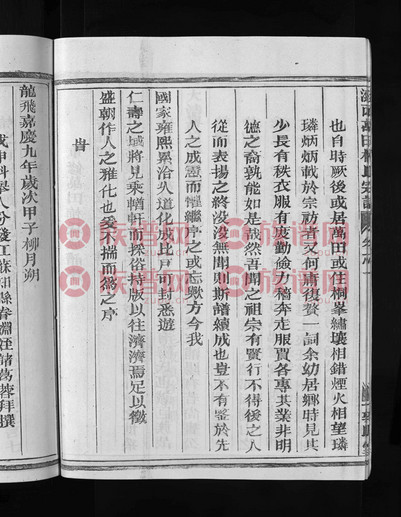 也自時厥後或居萬田或住桐峯繡壤相錯煙火相望璘
璘炳炳載於宗祊者又何庸復贅一詞余幼居鄉時見其
少長有秩衣服有度勤儉力穡奔走服賈各專其業非明
德之裔孰能如是哉然吾聞之祖宗有賢行不得後之人
從而表揚之終沒沒無聞則斯譜續成也豈不有鑒於先
人之成憲而惺繼序之或忘歟方今我
國家雍熙累洽人道化成比戶可封悉遊
仁壽之域將見乘輶軒而採俗持版以往濟濟焉足以徵
盛朝作人之雅化也爰不揣而為之序
旹
龍飛嘉慶九年歲次甲子柳月朔
戊申科舉人分發江蘇知縣春瀾姪諸葛蓉拜撰